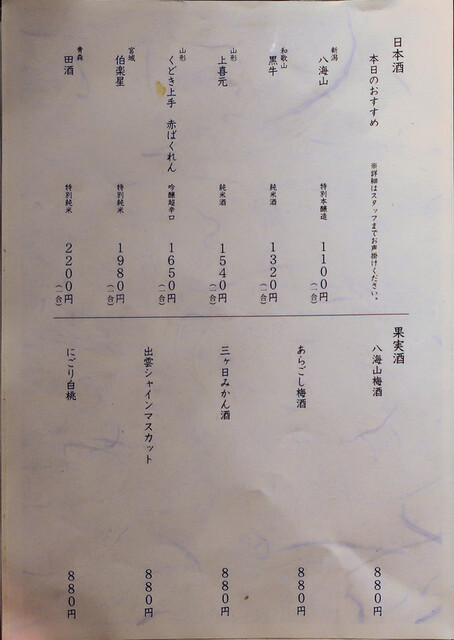 日本酒
本日のおすすめ ※詳細はスタッフまでお声掛けください。
新潟 八海山 特別本醸造 1100円(一合)
和歌山 黒牛 純米酒 1320円(一合)
山形 上喜元 純米酒 1540円(一合)
山形 くどき上手 赤ばくれん 吟醸超辛口 1650円(一合)
宮城 伯楽星 特別純米 1980円(一合)
青森 田酒 特別純米 2200円(一合)
果実酒
八海山梅酒 880円
あらごし梅酒 880円
三ヶ日みかん酒 880円
出雲シャインマスカット 880円
にごり白桃 880円